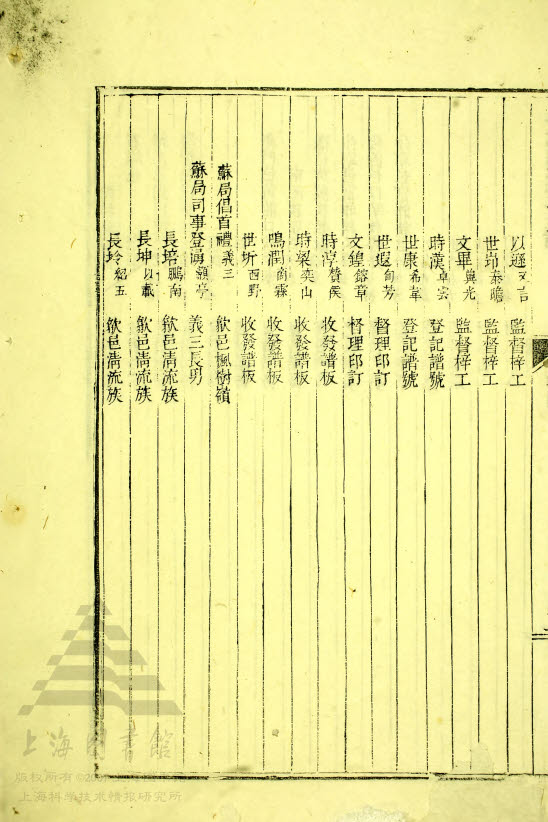 以遜文言 監督梓工
世峁泰瞻 監督梓工
文畢與光 監督梓工
時漢卓雲 登記譜號
世康希韋 登記譜號
世瑕甸芳 督理印訂
文鍠鎔章 督理印訂
時淳贊侯 收發譜板
時梁奕山 收發譜板
鳴潤商霖 收發譜板
世圻酉野 收發譜板
蘇局倡首禮義三 歙邑楓樹嶺
蘇局司事登瀛瀬亭 義三長男
長培鵬南 歙邑清流族
長坤以載 歙邑清流族
長坽紹五 歙邑清流族
上海圖書館
版权所有
上海科学技术情报研究所